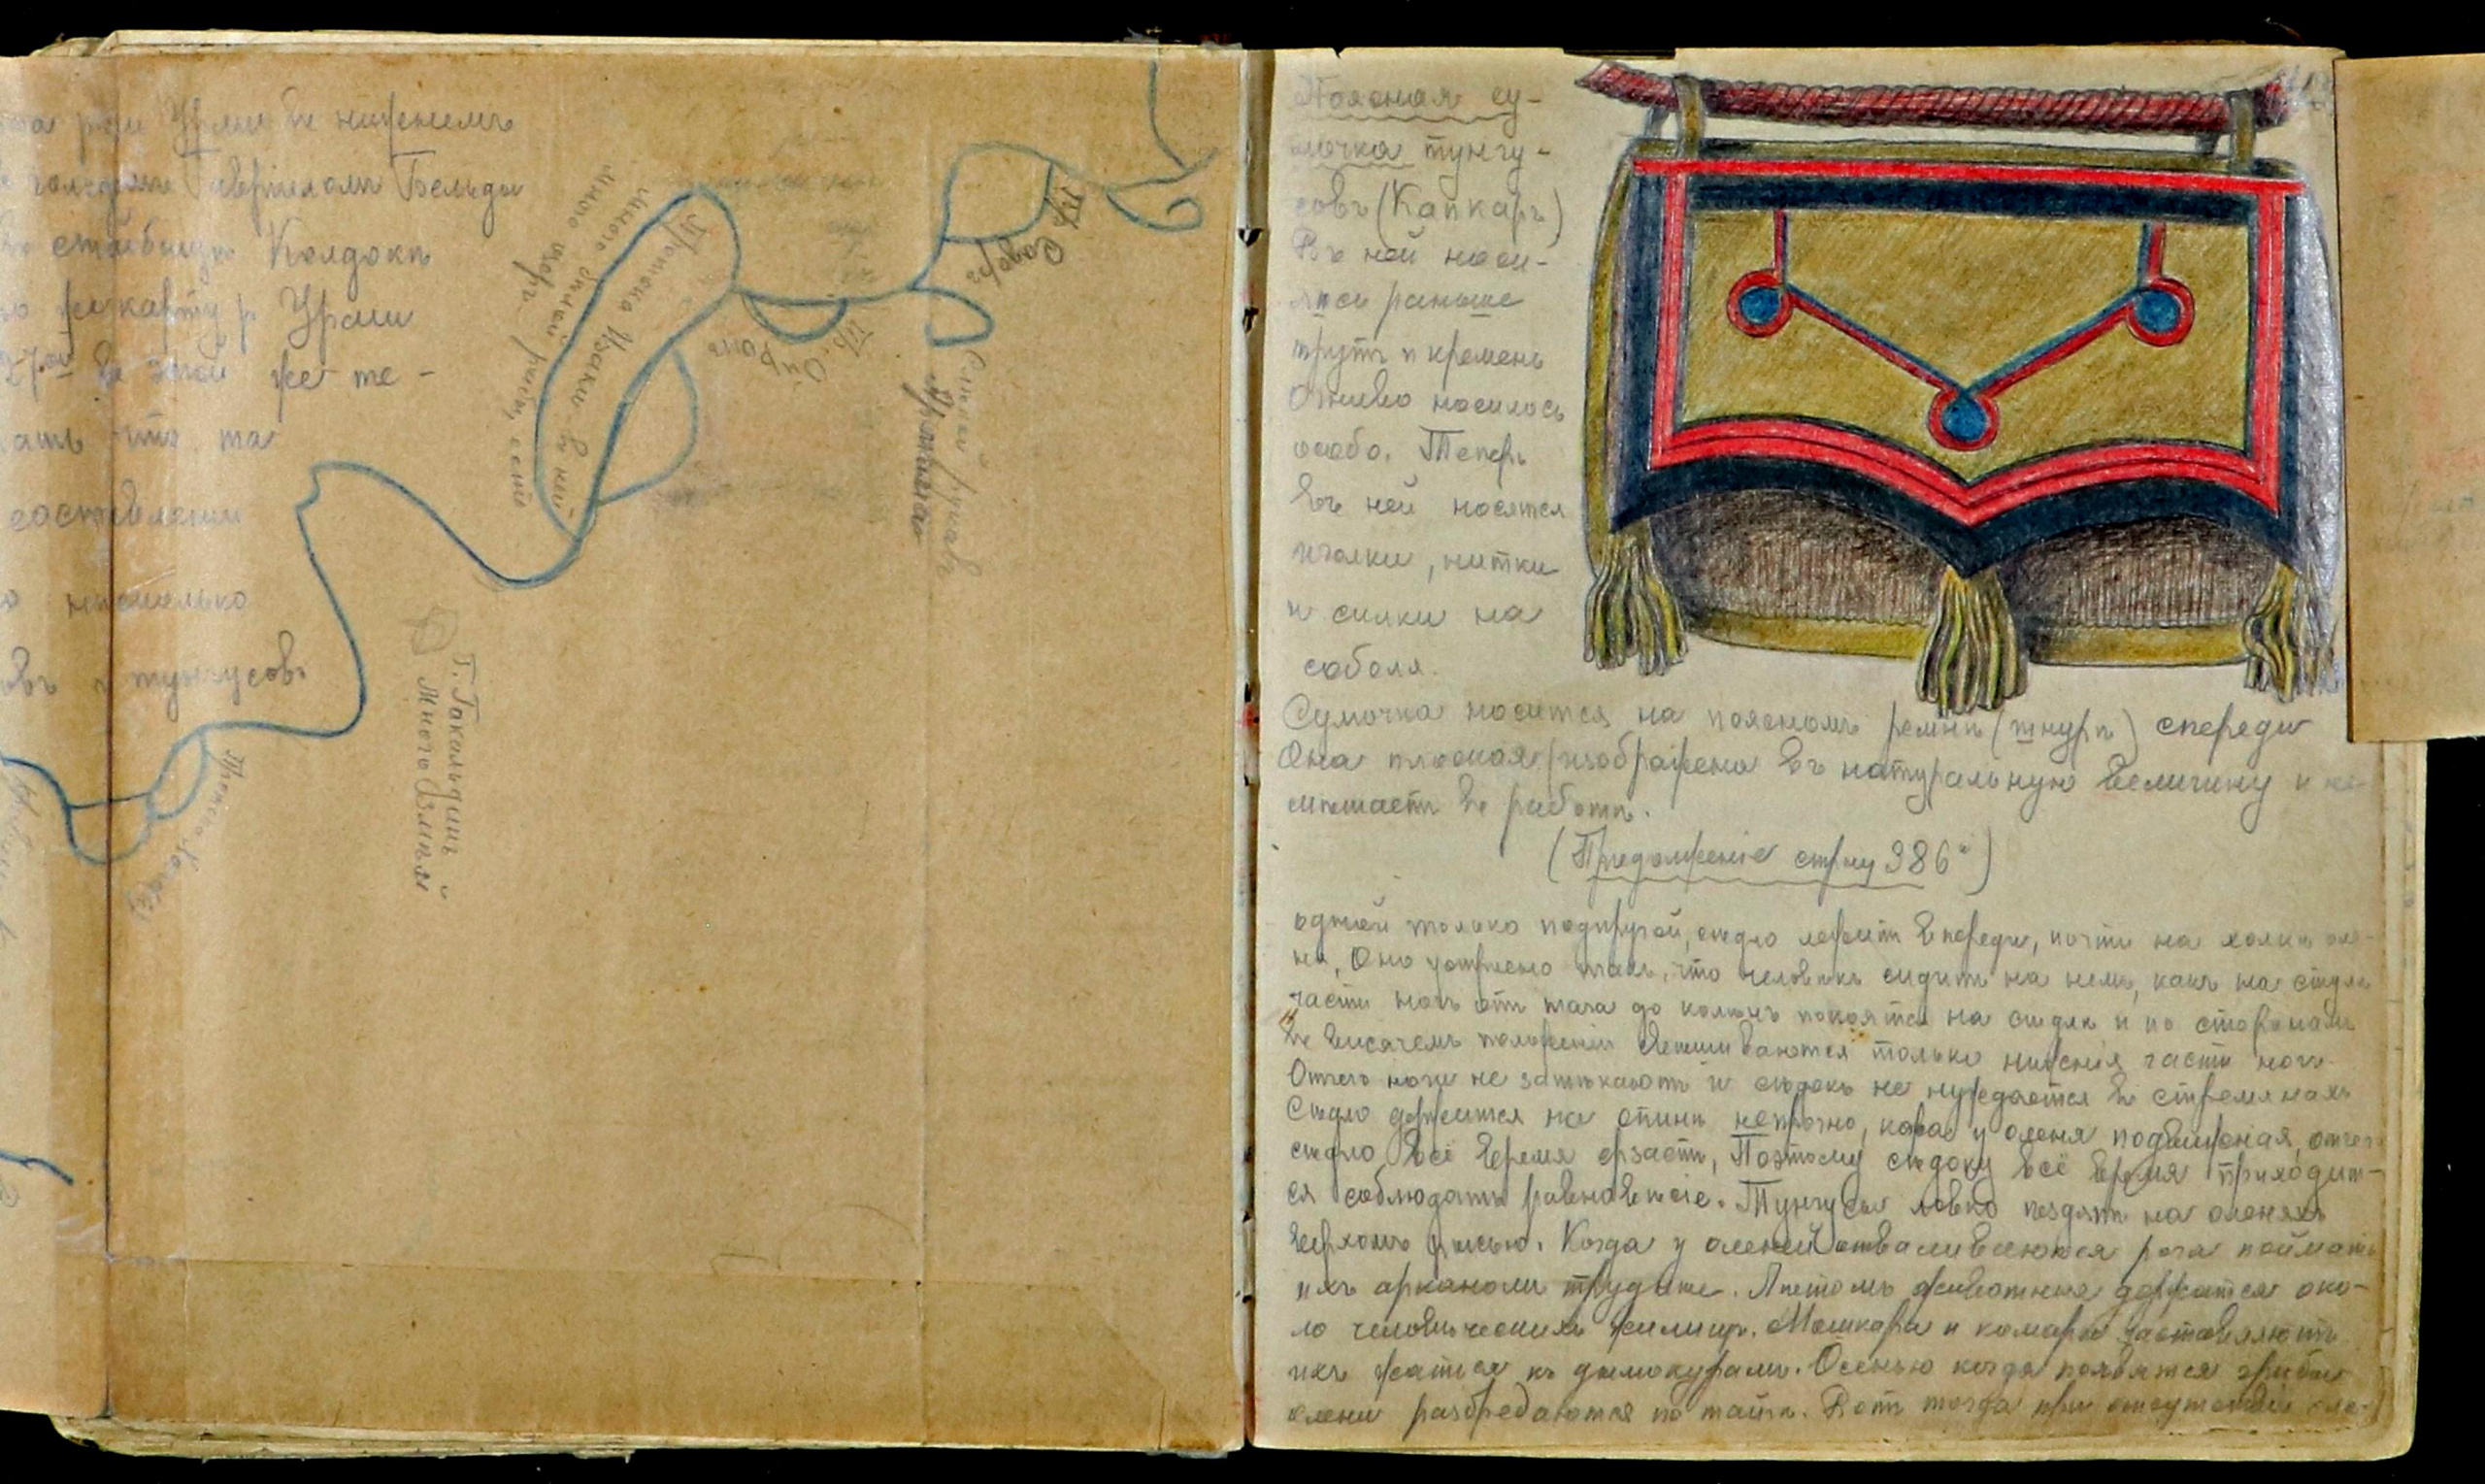 р. Урми въ нижнемъ
Бельды
стойбища Колдокъ
же карту р Урми
27го въ этой же те-
ать что та
составлении
нѣсколько
овъ и тунгусовъ
Протока
въ ней
много
Пр. Оиранъ
Пр. Соваръ
Протока
Г. Гокальдинъ
Много Змѣй
Поясная су-
мочка тунгу-
совъ (Капкаръ)
Въ ней носи-
лись раньше
трутъ и кремень
Огниво носилось
особо. Теперь
въ ней носятся
иголки, нитки
и силки на
соболя.
Сумочка носится на поясномъ ремнѣ (шнурѣ) спереди
Она плоская (изображена въ натуральную величину и не
мѣшаетъ въ работѣ.
(Продолженіе стрцу 386й)
одной только подпругой, сѣдло лежитъ впереди, почти на холкѣ оле-
ня, Оно устроено такъ, что человѣкъ сидитъ на немъ, какъ на стулѣ
части ногъ отъ таза до колѣнъ покоятся на сѣдлѣ и по сторонамъ
въ висячемъ положеніи свѣшиваются только нижнія части ногъ.
Отчего ноги не затѣкаютъ и сѣдокъ не нуждается въ стременахъ
Сѣдло держится на спинѣ непрочно, кожа у оленя подвижная, отчего
сѣдло всё время ёрзаетъ, Поэтому сѣдоку всё время приходит-
ся соблюдать равновѣсіе. Тунгусы ловко ѣздятъ на оленяхъ
верхомъ рысью. Когда у оленей отваливаются рога поймать
ихъ арканомъ труднѣе. Лѣтомъ животныя держатся око-
ло человѣческихъ жилищъ. Мошкара и комары заставляютъ
ихъ жаться къ дымокурамъ. Осенью когда появятся грибы
олени разбредаются по тайгѣ. Вотъ тогда при отсутствіи сле-